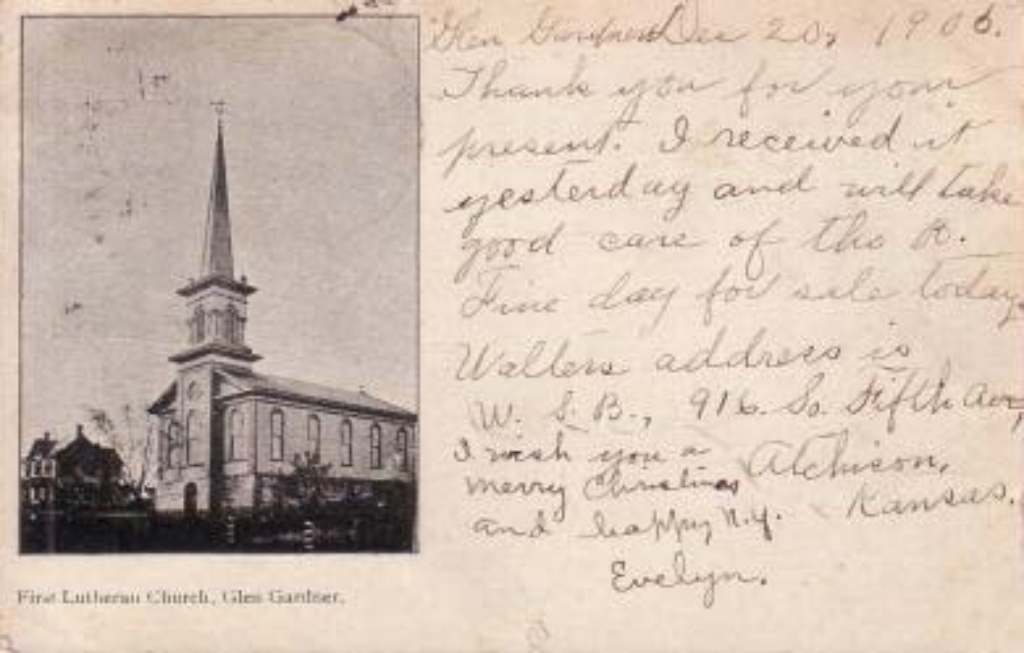 Glen Gardner Dec 20, 1906.
Thank you for your
present. I received it
yesterday and will take
good care of the R.
Fine day for sale today.
Walters address is
W. S. B., 916. So. Fifth Ave,
Atchison,
Kansas.
I wish you a
merry Christmas
and happy N.Y.
Evelyn.
First Lutheran Church, Glen Gardner.